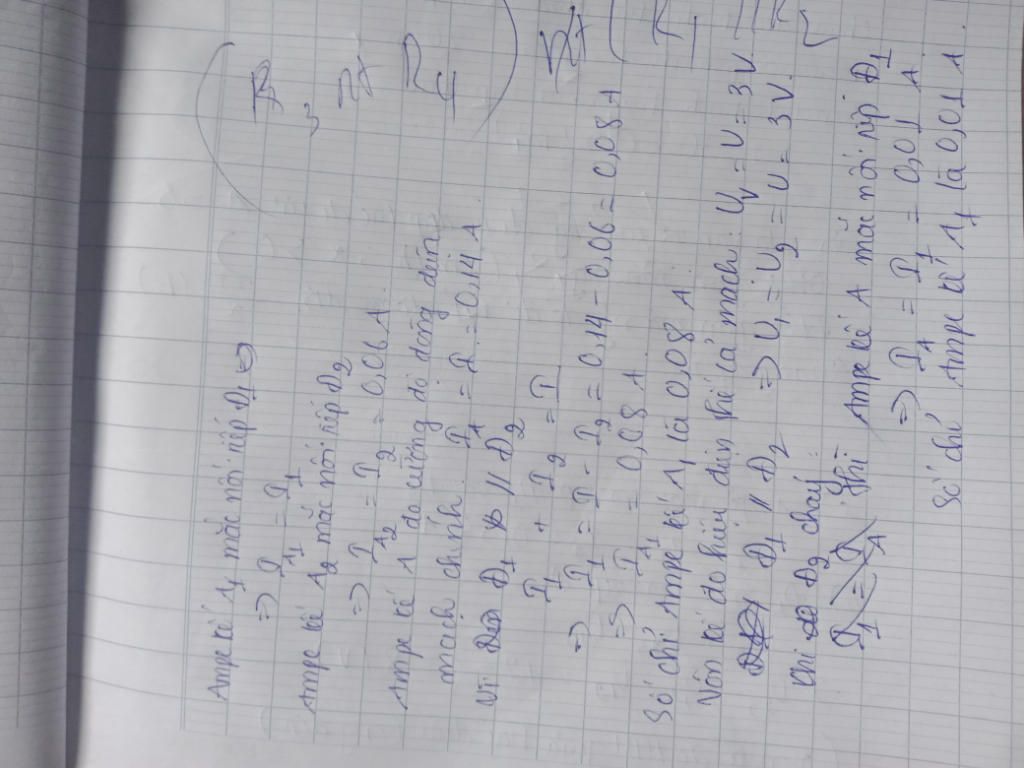 Ampe kế A₁ mắc nối tiếp Đ₁
=> I_A₁ = I₁
Ampe kế A₂ mắc nối tiếp Đ₂
=> I_A₂ = I₂ = 0,06 A
Ampe kế A đo cường độ dòng điện
mạch chính. I_A = I = 0,14 A
Vì Đ₁ // Đ₂
I₁ + I₂ = I
=> I₁ = I - I₂ = 0,14 - 0,06 = 0,08 A
=> I_A₁ = 0,08 A
Số chỉ Ampe kế A₁ là 0,08 A
Vôn kế đo hiệu điện thế cả mạch. U_V = U = 3V
Đ₁ // Đ₂ => U₁ = U₂ = U = 3V.
Khi Đ₂ cháy
I₁ = I_A Khi Ampe kế A mắc nối tiếp Đ₁
=> I_A = I₁ = 0,01 A
Số chỉ Ampe kế A₁ là 0,01 A